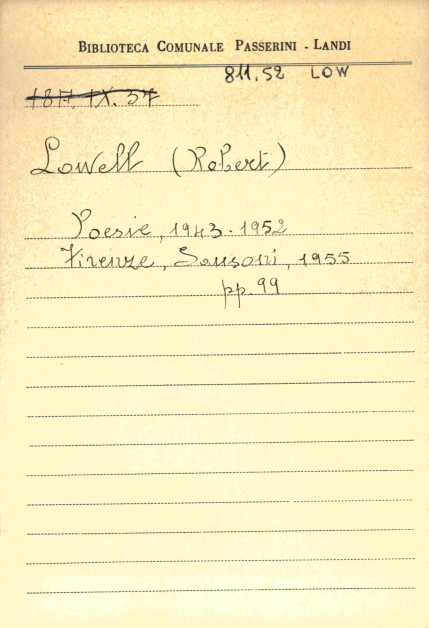 BIBLIOTECA COMUNALE PASSERINI - LANDI
811.52 LOW
Lowell (Robert)
Poesie, 1943-1952
Firenze, Sansoni, 1955
pp. 99